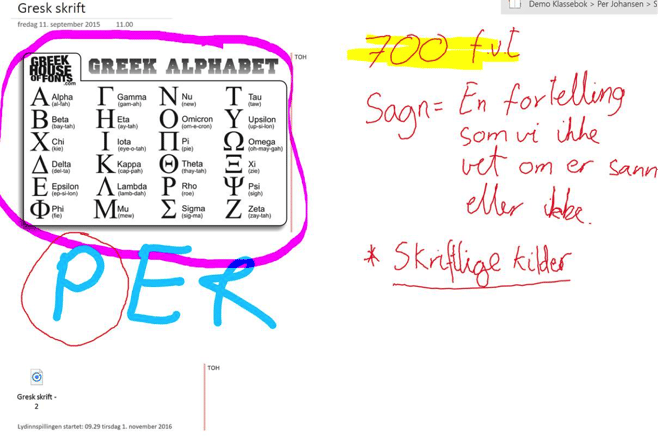 Gresk skrift
fredag 11. september 2015 11.00
Demo Klassebok > Per Johansen > S
TOH
GREEK HOUSE OF FONTS .com
GREEK ALPHABET
Α Alpha (al-fah) Γ Gamma (gam-ah) Ν Nu (new) Τ Tau (taw)
Β Beta (bay-tah) Η Eta (ay-tah) Ο Omicron (om-e-cron) Υ Upsilon (up-si-lon)
Χ Chi (kie) Ι Iota (eye-o-tah) Π Pi (pie) Ω Omega (oh-may-gah)
Δ Delta (del-ta) Κ Kappa (cap-pah) Θ Theta (thay-tah) Ξ Xi (zie)
Ε Epsilon (ep-si-lon) Λ Lambda (lamb-dah) Ρ Rho (roe) Ψ Psi (sigh)
Φ Phi (fie) Μ Mu (mew) Σ Sigma (sig-ma) Ζ Zeta (zay-tah)
PER
700 f.v.t
Sagn = En fortelling
som vi ikke
vet om er sann
eller ikke.
* Skriftlige kilder
TOH
Gresk skrift -
2
Lydinnspillingen startet: 09.29 tirsdag 1. november 2016